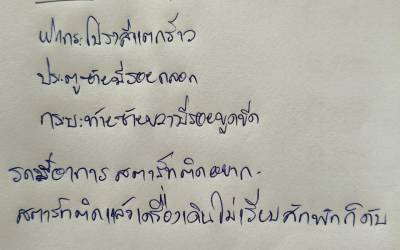 ฝากระโปรงสีแตกร้าว
ประตูซ้ายมีรอยถลอก
กระบะท้ายซ้ายขวามีรอยขูดขีด
รถมีอาการ สตาร์ทติดยาก.
สตาร์ทติดแล้วเครื่องเดินไม่เรียบสักพักก็ดับ